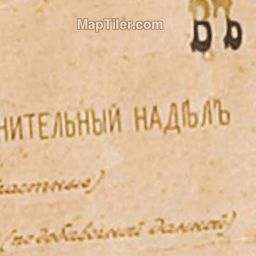 MapTiler.com
ВЪ
НИТЕЛЬНЫЙ НАДѢЛЪ
частные)
(по добавочной данной)